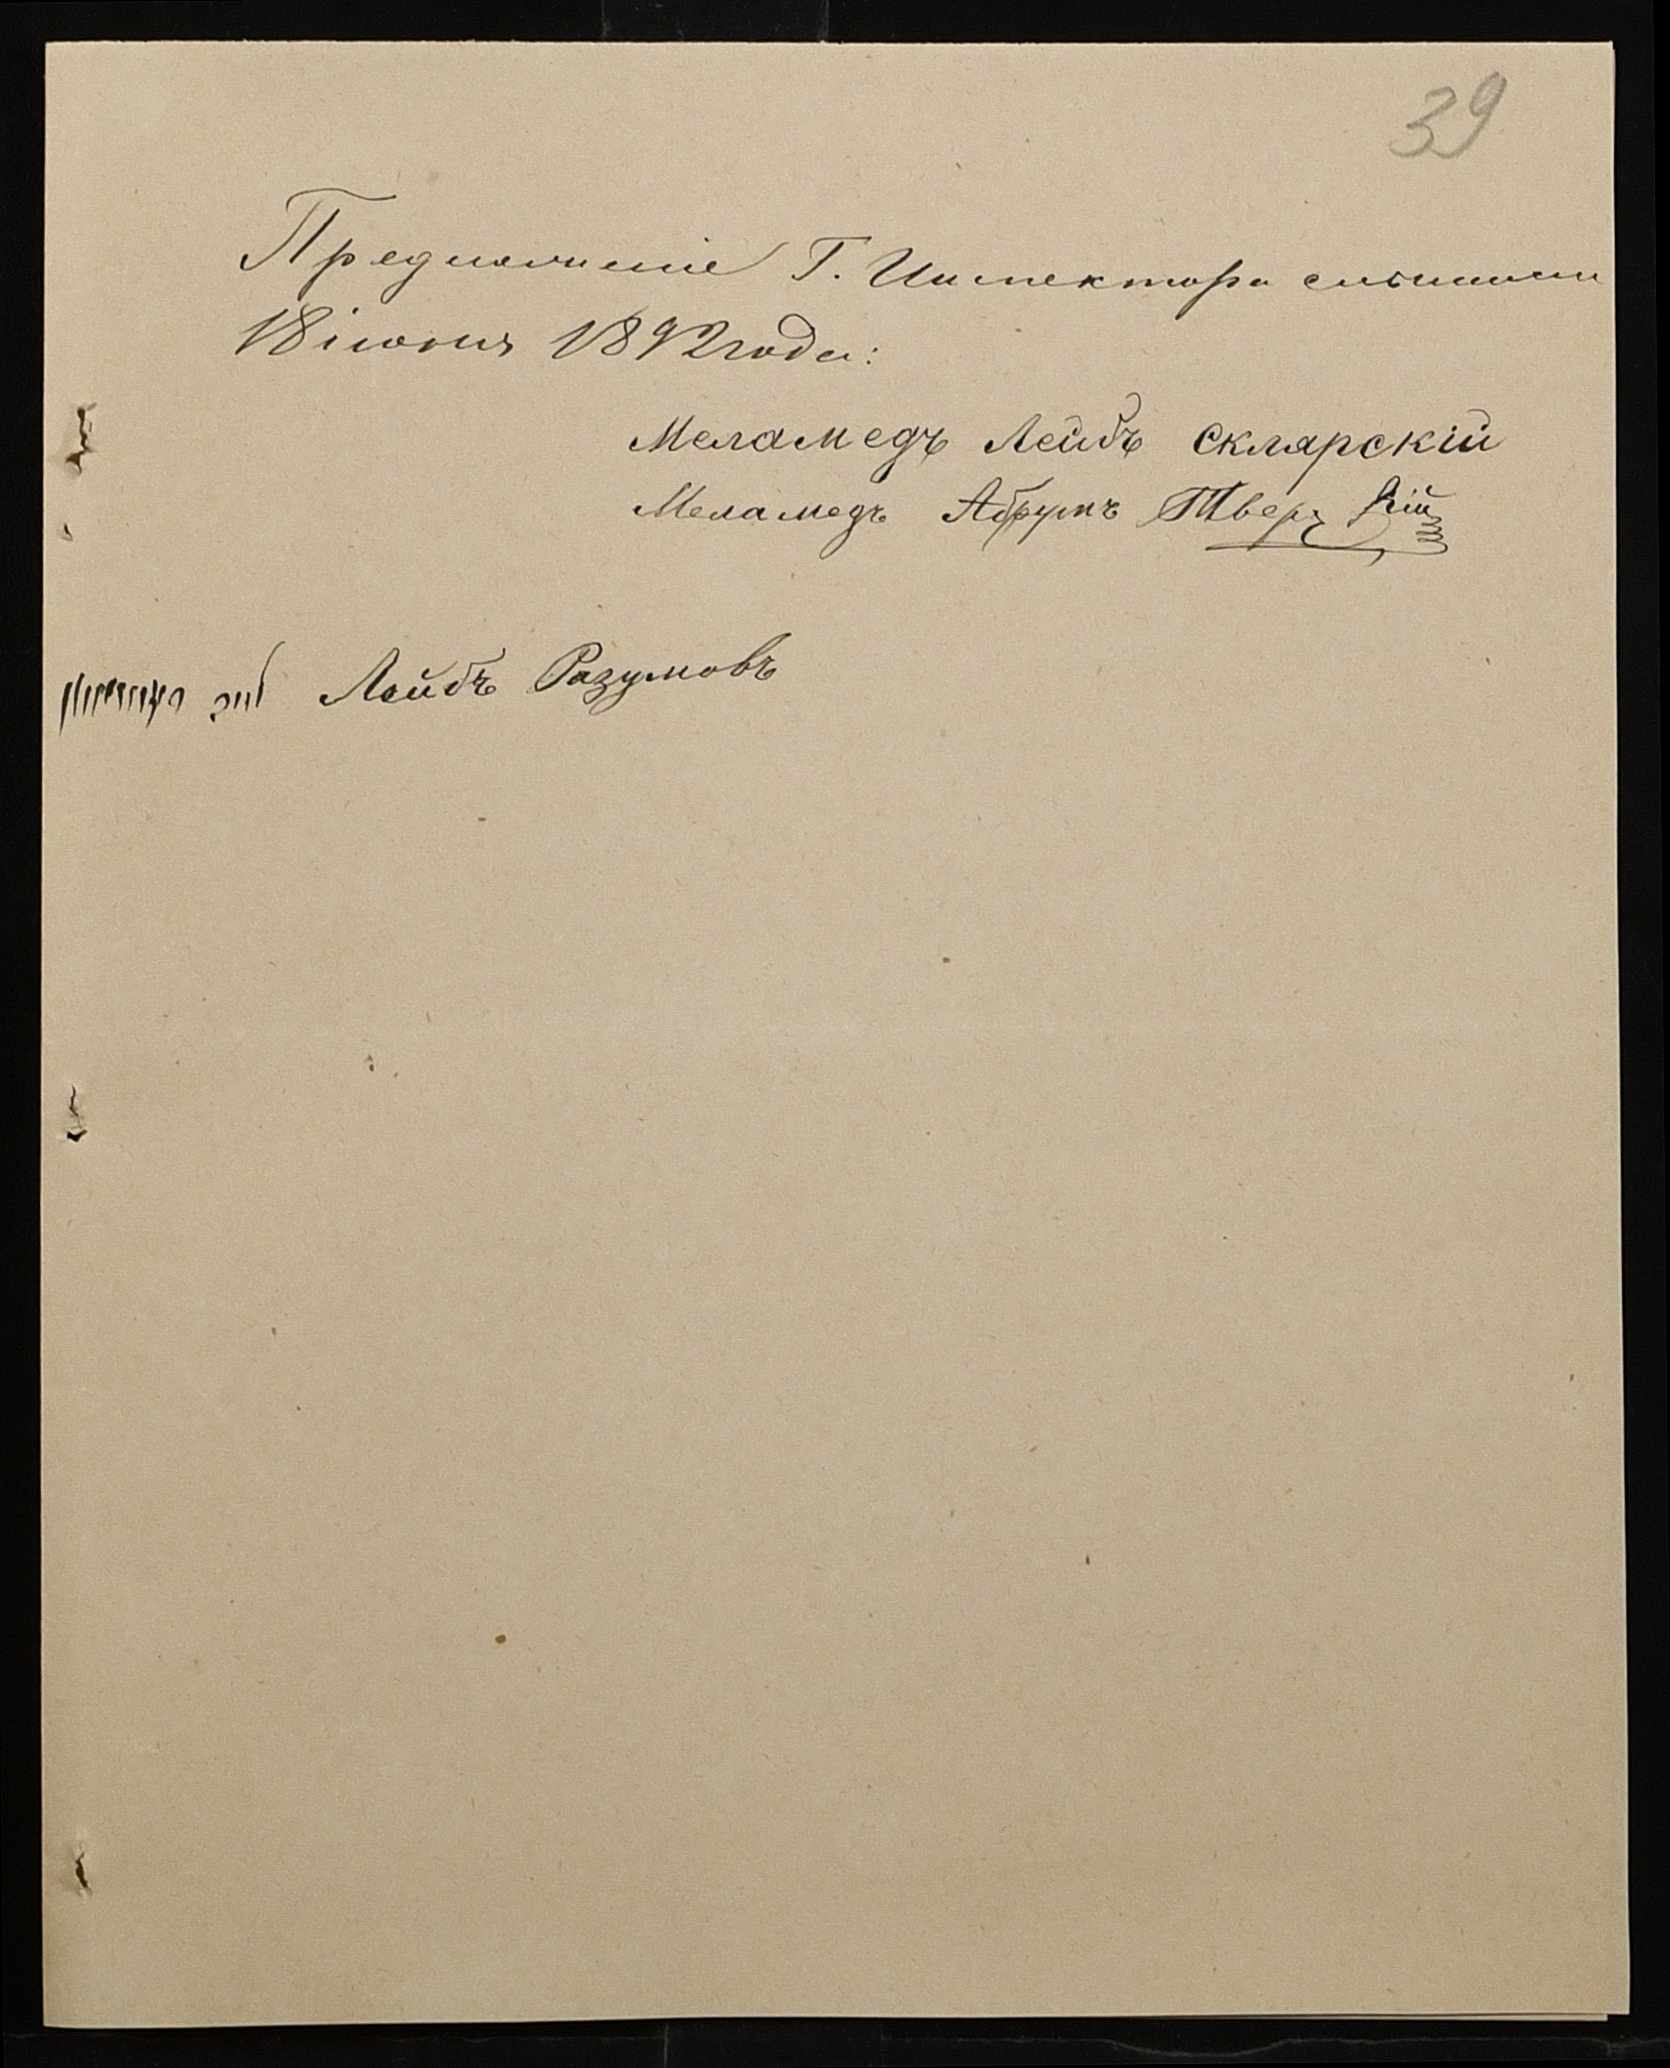 39
Предложеніе Г. Инспектора слышали
18 іюня 1892 года:
Меламедъ Лейбъ Склярскій
Меламедъ Абрумъ Тверскій
Лейбъ Разумовъ